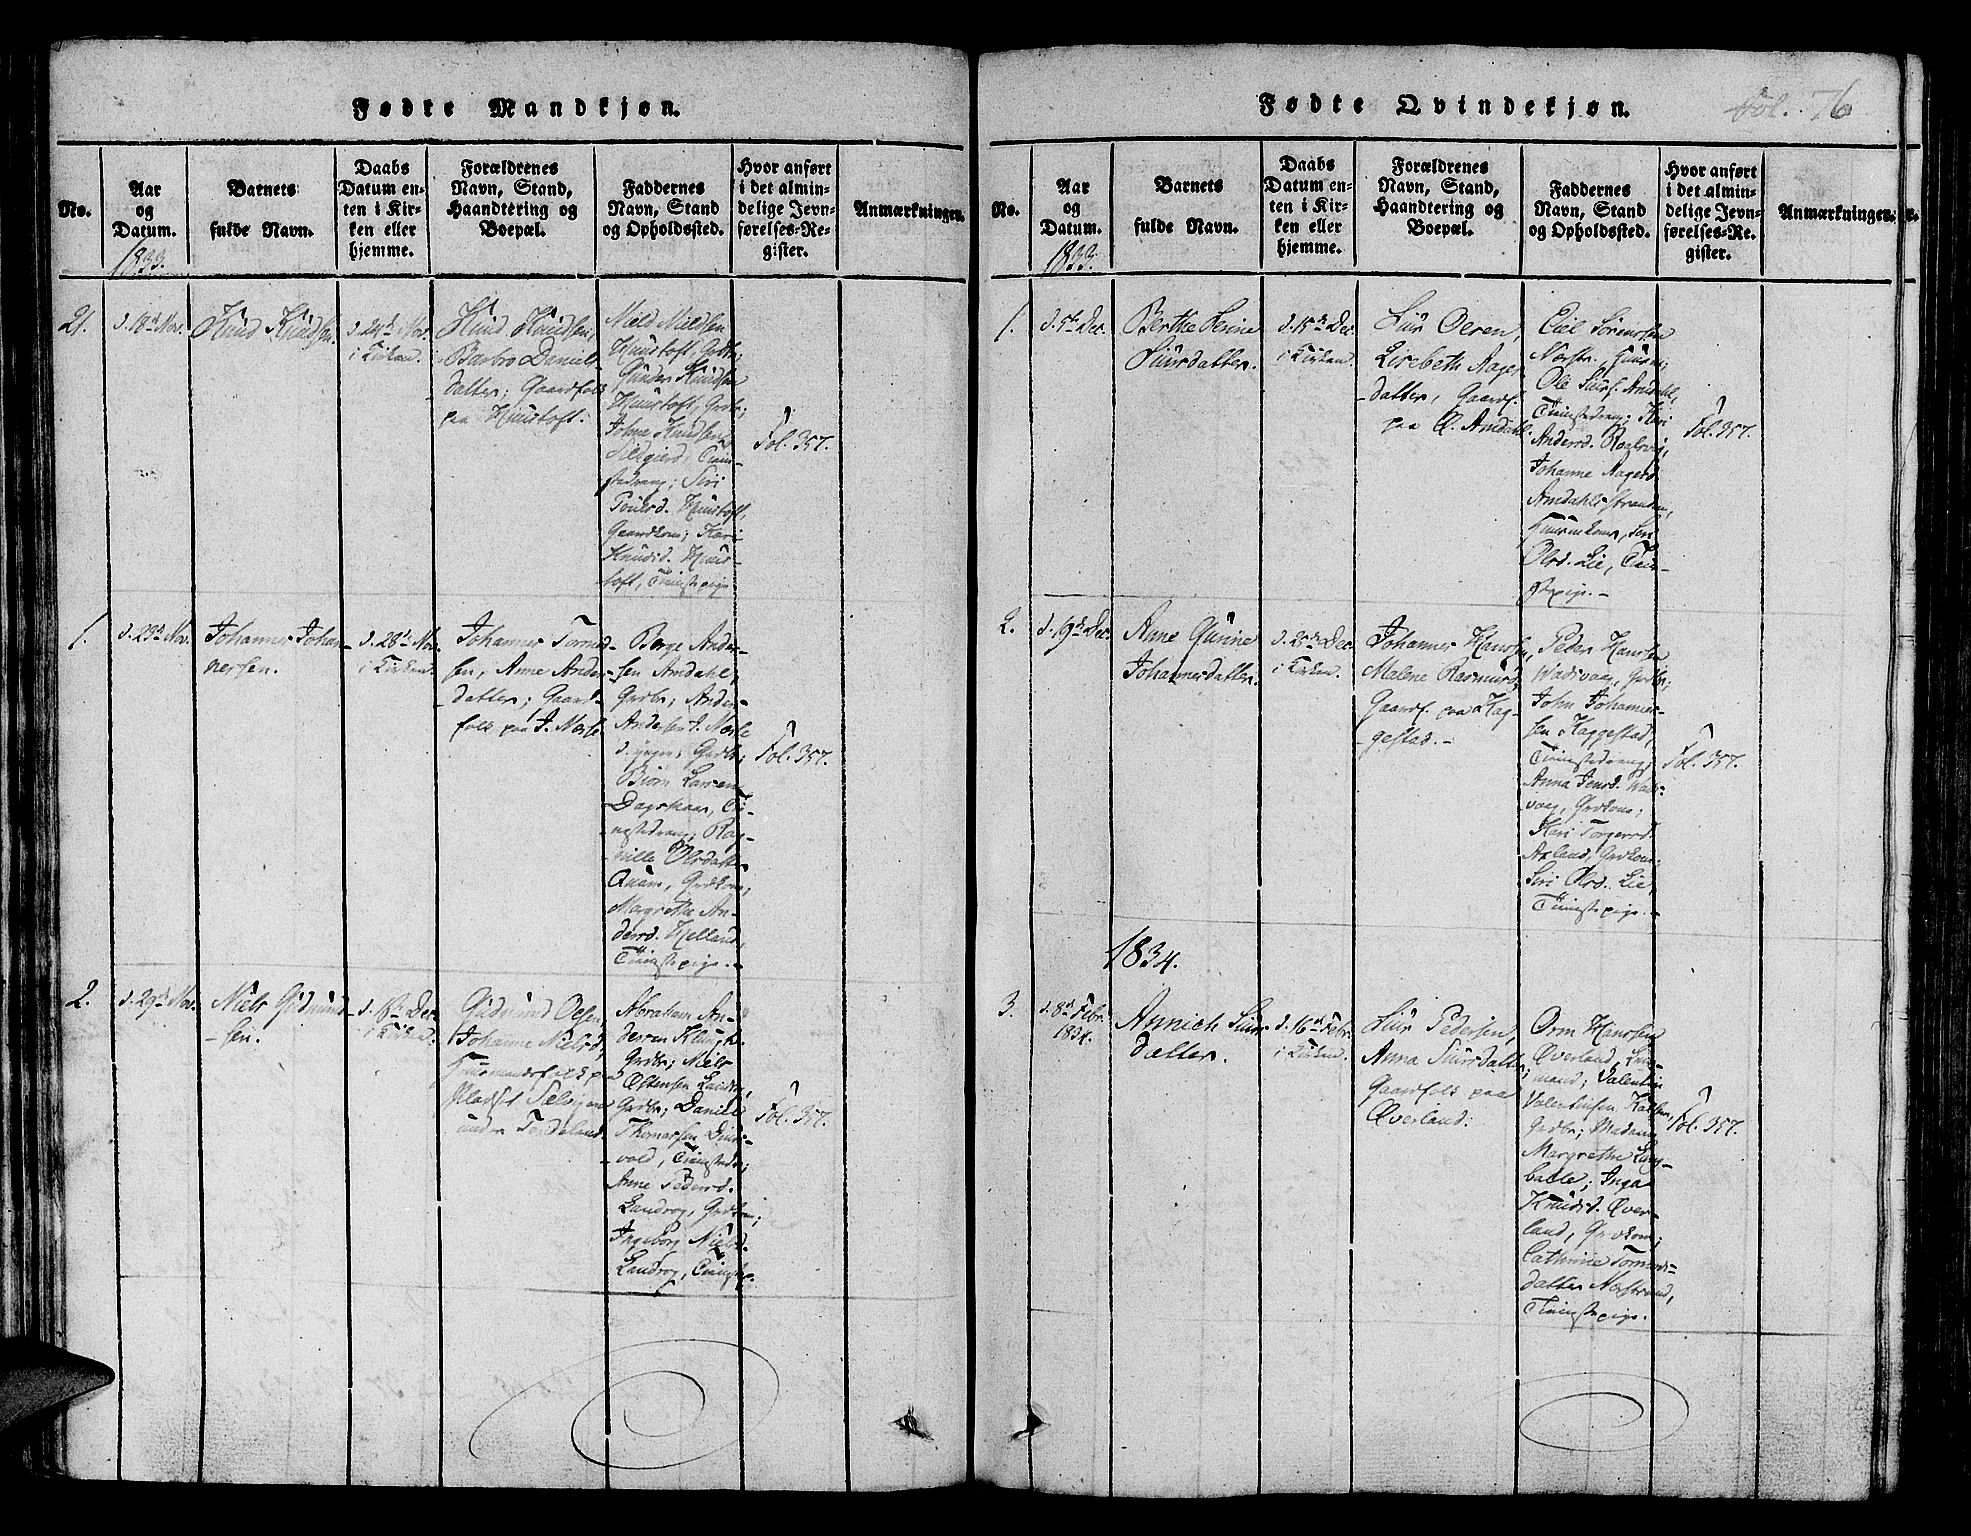 Fødte Mandkjøn.
No.
Aar
og
Datum.
1833.
Barnets
fulde Navn.
Daabs
Datum en-
ten i Kir-
ken eller
hjemme.
Forældrenes
Navn, Stand,
Haandtering og
Boepæl.
Faddernes
Navn, Stand
og Opholdssted.
Hvor anført
i det almin-
delige Jevn-
førelses-Re-
gister.
Anmærkninger.
21.
d. 18de Nov.
Knud Knudsen.
d. 24de Nov.
i Kirken.
Knud Knudsen,
Barbro Daniels-
datter; Gaardfolk
paa Huustoft.
Nield Nieldsen
Huustoft, Grdbr;
Gunder Knudsen
Huustoft, Grdbr;
Johne Knudsen
Tieneste-
dreng; Siri
Povelsd. Huustoft,
Gaardkone; Kari
Knudsd. Huus-
toft, Tienestepige.
Fol. 357.
1.
d. 23de Nov.
Johannes Johan-
nesen.
d. 28de Nov.
i Kirken.
Johannes Tormod-
sen, Anne Anders-
datter; Gaard-
folk paa I. Narse.
Børge Ander-
sen Amdahl,
Grdbr; Anders
Andersen I. Narse
d. yngre, Grdbr;
Biørn Larsen
Dagsland, Tie-
nestedreng; Rag-
nille Olsdatter
Quam, Grdkone;
Margrethe An-
dersd. Helland,
Tienestepige.
Fol. 357.
2.
d. 29de Nov.
Niels Gudmund-
sen.
d. 18de Dec.
i Kirken.
Gudmund Olsen
Johanne Nielsd.
Huusmandsfolk paa
Pladset
under
Abraham An-
dersen
Grdbr; Niels
Østensen Landrog,
Grdbr; Daniel
Thomassen
Tienestedr;
Anne Pedersd.
Landrog, Grdkone;
Ingeborg Nielsd.
Landrog, Tienestep.
Fol. 357.
Fødte Qvindekjøn.
Fol. 76
No.
Aar
og
Datum.
1833.
Barnets
fulde Navn.
Daabs
Datum en-
ten i Kir-
ken eller
hjemme.
Forældrenes
Navn, Stand,
Haandtering og
Boepæl.
Faddernes
Navn, Stand
og Opholdssted.
Hvor anført
i det almin-
delige Jevn-
førelses-Re-
gister.
Anmærkninger.
1.
d. 5te Dec.
Berthe Serine
Siursdatter.
d. 15de Dec.
i Kirken.
Siur Olsen,
Lisebeth Aages-
datter, Gaardf.
paa Ø. Amdahl.
Eiel Sørensen
Narstr.,
Ole Siurs. Amdahl,
Tienestedreng; Kari
Andersd.
Johanne Aagesd.
Amdahlsstranden,
Siri
Olsd. Lie, Tiene-
stepige.
Fol. 357.
2.
d. 19de Dec.
Anne Gurine
Johannesdatter.
d. 26de Dec.
i Kirken.
Johannes Hansen,
Malene Rasmusd.
Gaardf. paa Hag-
gestad.
Peder Hansen
Wadsvaag, Grdbr;
John Johannes-
sen Haggestad,
Tienestedreng;
Anna Jensd. Wads-
vaag, Grdkone;
Kari Torgersd.
Axland, Grdkone;
Siri Olsd. Lie,
Tienestepige.
Fol. 357.
1834.
3.
d. 8de Febr.
1834.
Annich Siurs-
datter.
d. 16de Febr.
i Kirken.
Siur Pedersen,
Anna Siursdatter;
Gaardfolk paa
Øverland.
Orm Hansen
Øverland, Lens-
mand; Valentin
Valentinsen
Grdbr; Madame
Margrethe Lang-
balle; Inga
Knudsd. Øver-
land, Grdkone;
Cathrine Tormods-
datter Narstrand,
Tienestepige.
Fol. 357.